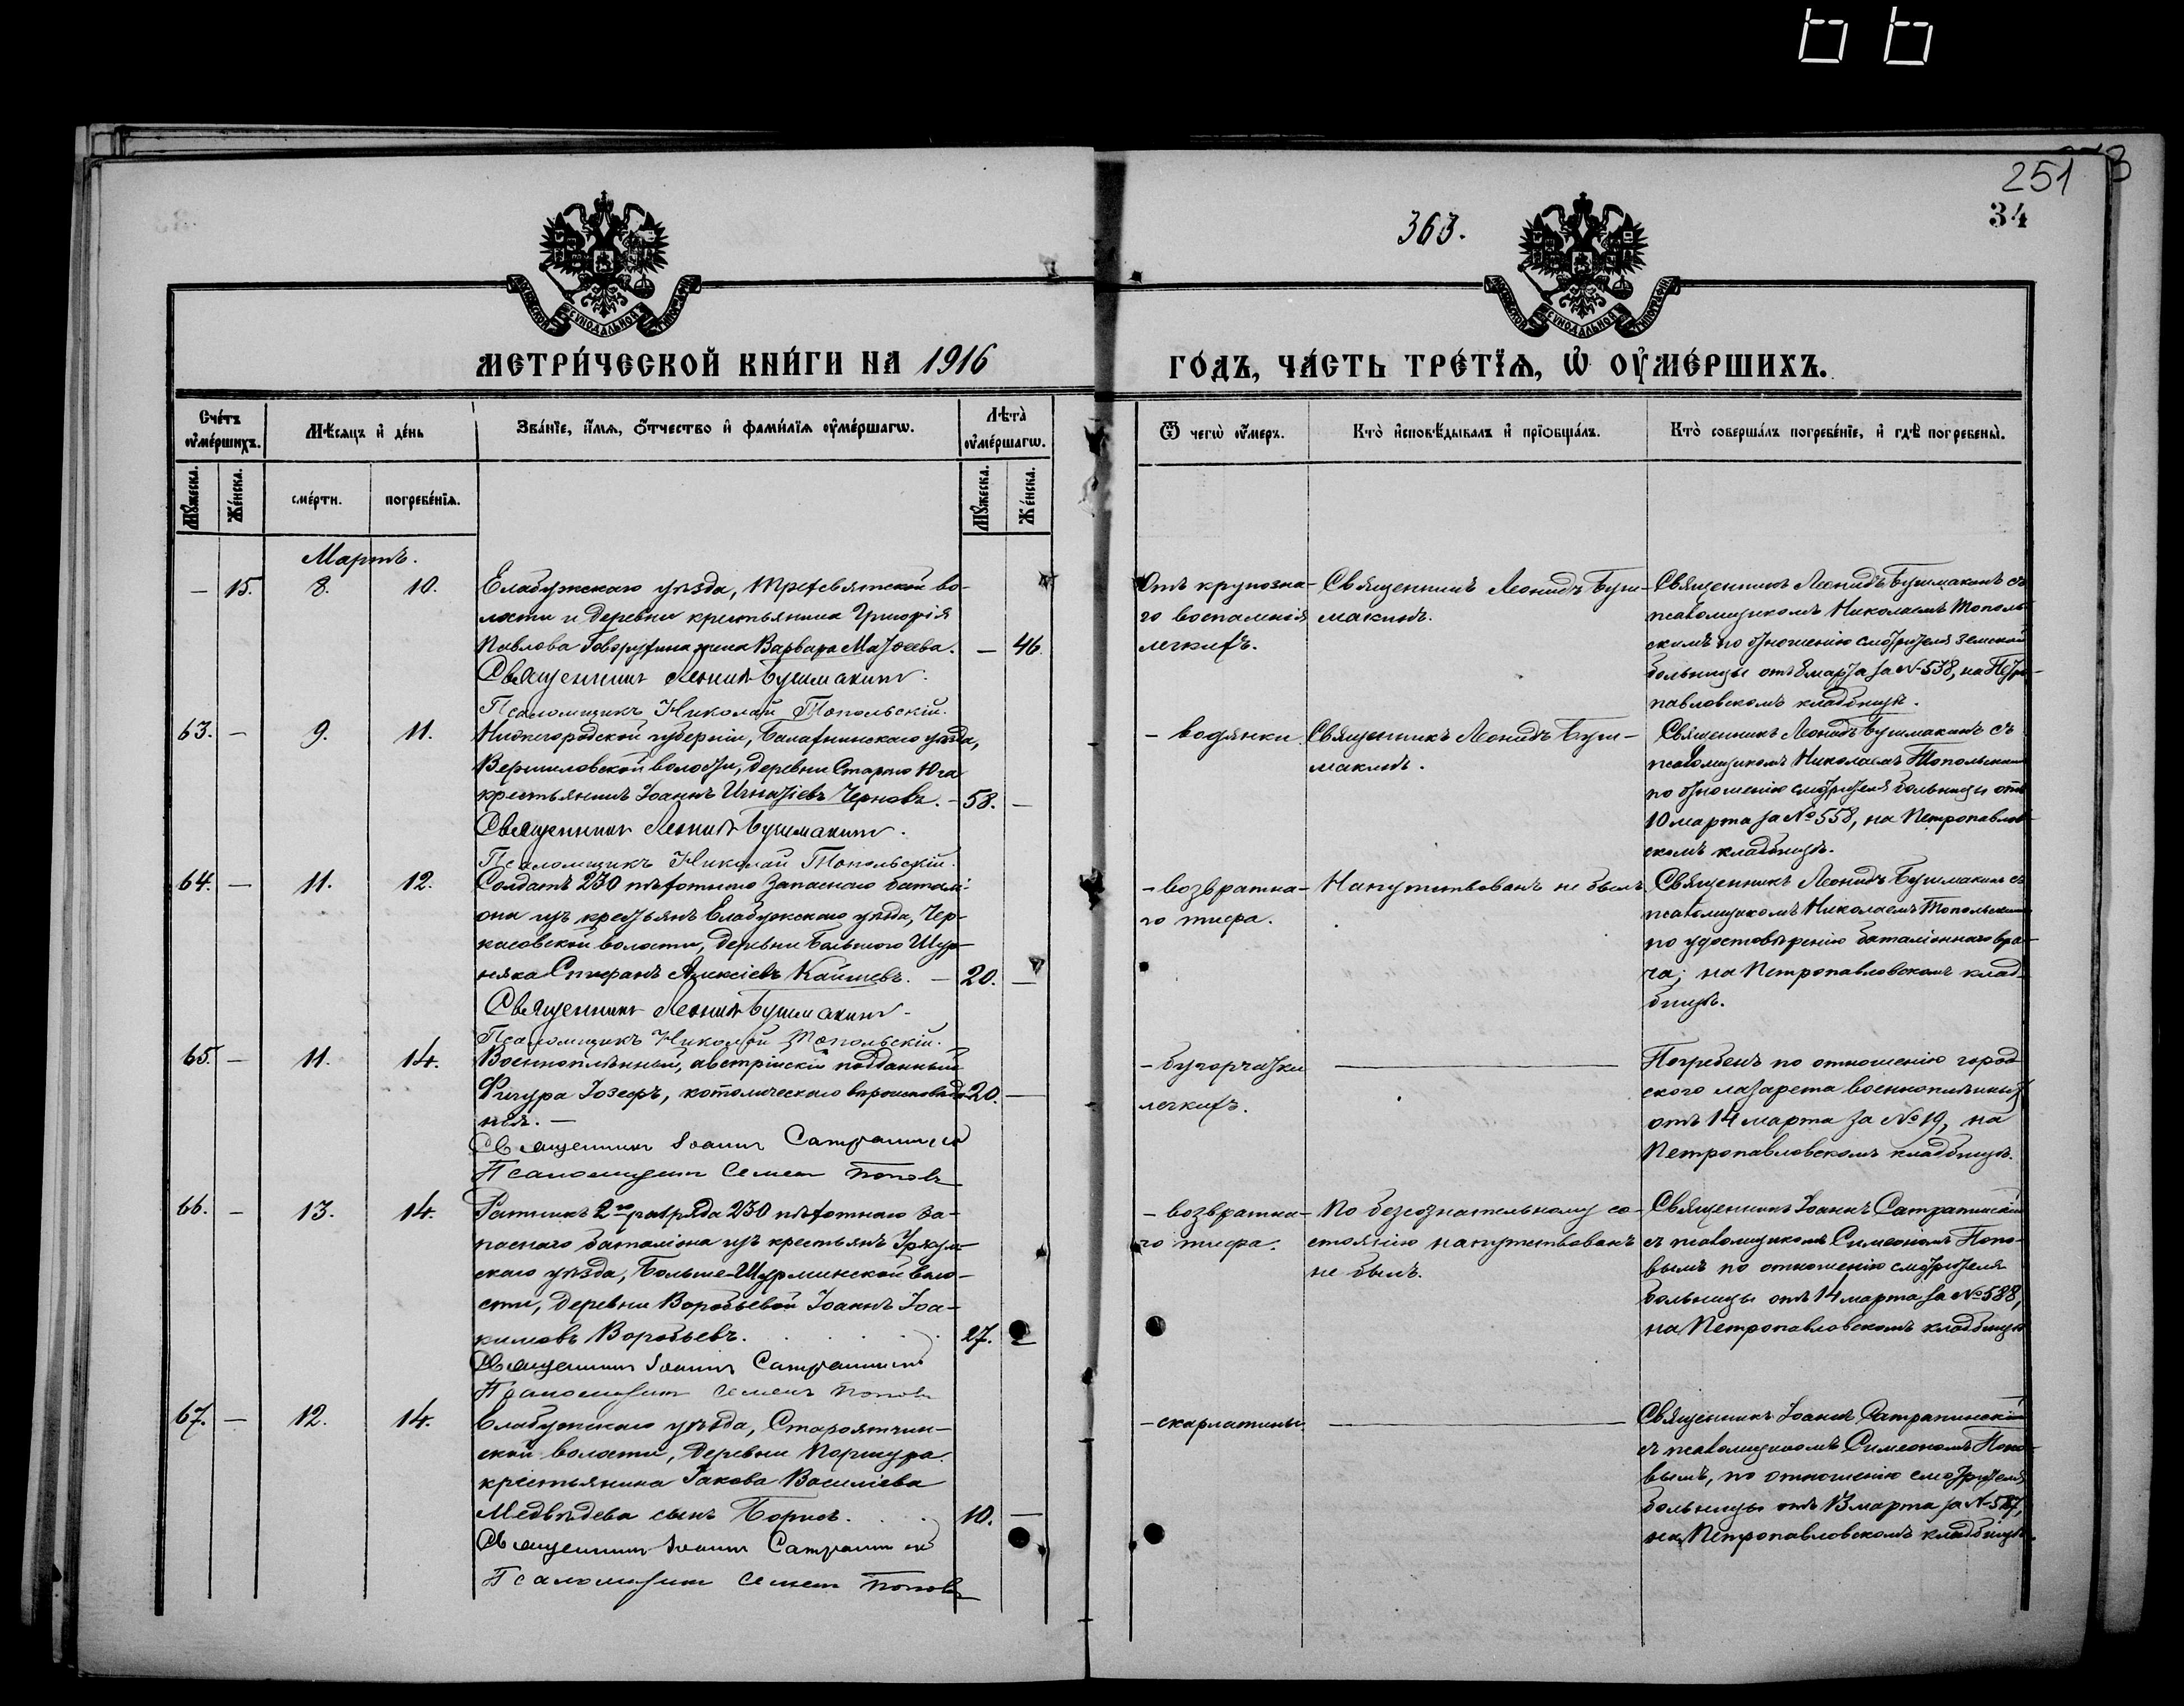 251
34
363.
МЕТРИ́ЧЕСКОЙ КНИ́ГИ НА 1916
ГО́ДЪ, ЧА́СТЬ ТРЕ́ТЇѦ, Ѡ҆ ОУ҆МЕ́РШИХЪ.
Сче́тъ оу҆ме́ршихъ.
Мѣ́сяцъ и҆ де́нь
Зва́нїе, и҆́мѧ, ѻ҆́тчество и҆ фами́лїѧ оу҆ме́ршагѡ.
Лѣта̀ оу҆ме́ршагѡ.
Ѿ чегѡ̀ оу҆́меръ.
Кто̀ и҆сповѣ́дывалъ и҆ прїѡбща́лъ.
Кто̀ соверша́лъ погребе́нїе, и҆ гдѣ̀ погребены̀.
Мꙋ́жеска.
Же́нска.
сме́рти.
погребе́нїѧ.
Мꙋ́жеска.
Же́нска.
Мартъ.
— 15. 8. 10.
Елабужскаго уѣзда, Трехсвятской во-
лости и деревни крестьянина Григорія
Павлова жена Варвара Матѳеева. — 46.
Священникъ Леонидъ Бушмакинъ.
Псаломщикъ Николай Топольскій.
Отъ крупозна-
го воспаленія
легкихъ.
Священникъ Леонидъ Буш-
макинъ.
Священникъ Леонидъ Бушмакинъ съ
псаломщикомъ Николаемъ Тополь-
скимъ по отношенію смотрителя земской
больницы отъ 8 марта за № 538, на Петро-
павловскомъ кладбищѣ.
63. — 9. 11.
Нижегородской губерніи, Балахнинскаго уѣзда,
Вершиловской волости, деревни Стараго Юга
крестьянинъ Іоаннъ Игнатіевъ Черновъ. — 58. —
Священникъ Леонидъ Бушмакинъ.
Псаломщикъ Николай Топольскій.
— водянки.
Священникъ Леонидъ Буш-
макинъ.
Священникъ Леонидъ Бушмакинъ съ
псаломщикомъ Николаемъ Топольскимъ
по отношенію смотрителя больницы отъ
10 марта за № 558, на Петропавлов-
скомъ кладбищѣ.
64. — 11. 12.
Солдатъ 230 пѣхотнаго запаснаго баталі-
она изъ крестьянъ Елабужскаго уѣзда, Чер-
касовской волости, деревни Большого Шур-
няка Спифанъ Алексіевъ — 20. —
Священникъ Леонидъ Бушмакинъ.
Псаломщикъ Николай Топольскій.
— возвратна-
го тифа.
Напутствованъ не былъ.
Священникъ Леонидъ Бушмакинъ съ
псаломщикомъ Николаемъ Топольскимъ
по удостовѣренію баталіоннаго вра-
ча; на Петропавловскомъ клад-
бищѣ.
65. — 11. 14.
Военноплѣнный, австрійскій подданный
Фигура Іозефъ, католическаго вѣроисповѣда- 20. —
нія. —
Священникъ Іоаннъ Сатрапинскій
Псаломщикъ Семенъ Поповъ
— бугорчатки
легкихъ.
—
Погребенъ по отношенію город-
ского лазарета военноплѣнныхъ
отъ 14 марта за № 19, на
Петропавловскомъ кладбищѣ.
66. — 13. 14.
Ратникъ 2го разряда 230 пѣхотнаго за-
паснаго баталіона изъ крестьянъ Уржум-
скаго уѣзда, Больше-Шурминской воло-
сти, деревни Воробьевой Іоаннъ Іоа-
кимовъ Воробьевъ. 27. —
Священникъ Іоаннъ Сатрапинскій
Псаломщикъ Семенъ Поповъ
— возвратна-
го тифа.
По безсознательному со-
стоянію напутствованъ
не былъ.
Священникъ Іоаннъ Сатрапинскій
съ псаломщикомъ Симеономъ Попо-
вымъ по отношенію смотрителя
больницы отъ 14 марта за № 588,
на Петропавловскомъ кладбищѣ
67. — 12. 14.
Елабужскаго уѣзда, Старо-
ской волости, деревни Поршура
крестьянина Іакова Василіева
Медвѣдева сынъ Борисъ. 10. —
Священникъ Іоаннъ Сатрапинскій
Псаломщикъ Семенъ Поповъ
— скарлатины.
—
Священникъ Іоаннъ Сатрапинскій
съ псаломщикомъ Симеономъ Попо-
вымъ, по отношенію смотрителя
больницы отъ 13 марта за
на Петропавловскомъ кладбищѣ.